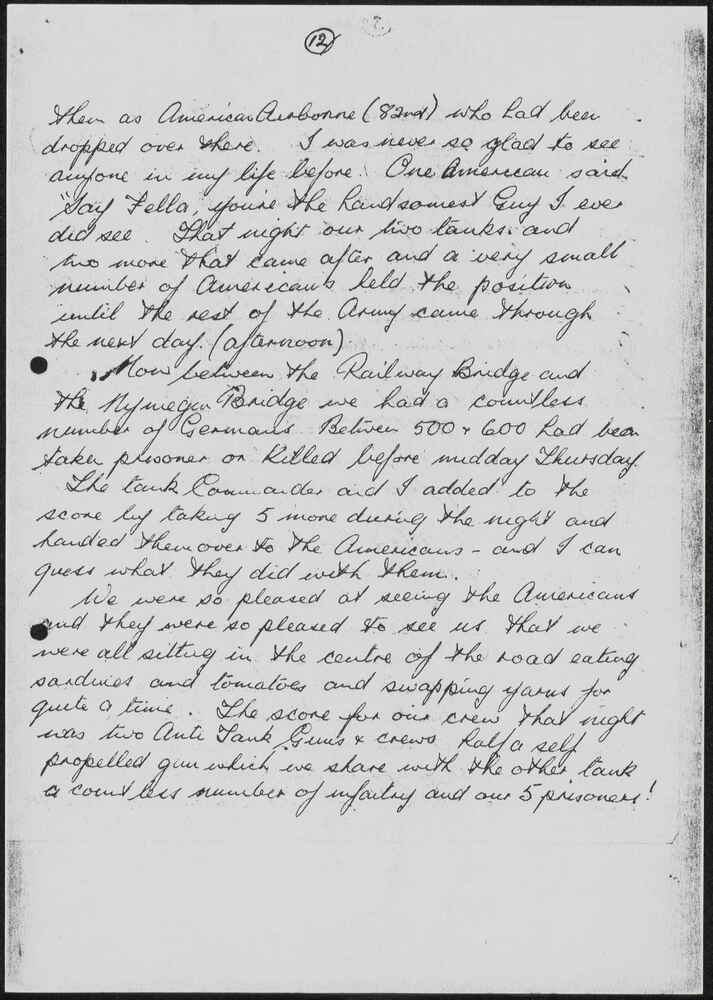 12
them as American Airborne (82nd) who had been
dropped over there. I was never so glad to see
anyone in my life before. One American said.
"Say Fella, you're the handsomest Guy I ever
did see. That night our two tanks and
two more that came after and a very small
number of Americans held the position
until the rest of the Army came through
the next day. (afternoon)
Now between the Railway Bridge and
the Nymegen Bridge we had a countless
number of Germans. Between 500 & 600 had been
taken prisoner or killed before midday Thursday.
The tank Commander and I added to the
score by taking 5 more during the night and
handed them over to the Americans - and I can
guess what they did with them.
We were so pleased at seeing the Americans
and they were so pleased to see us that we
were all sitting in the centre of the road eating
sardines and tomatoes and swapping yarns for
quite a time. The score for our crew that night
was two Anti Tank Guns & crews half a self
propelled gun which we share with the other tank
a countless number of infantry and our 5 prisoners!